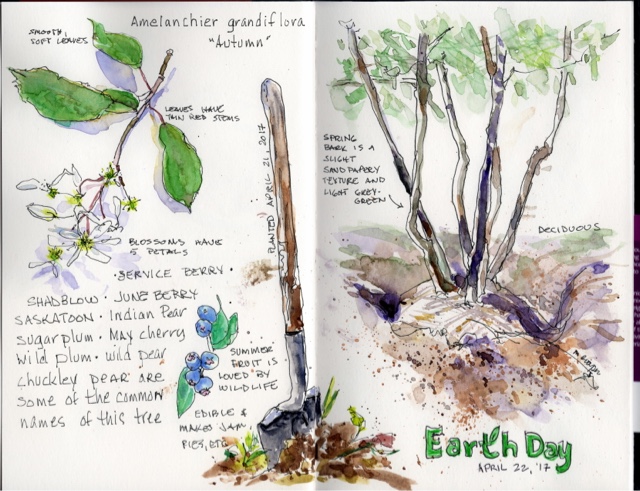 Amelanchier grandiflora
"Autumn"
SMOOTH,
SOFT LEAVES
LEAVES HAVE
THIN RED STEMS
PLANTED APRIL 21, 2017
BLOSSOMS HAVE
5 PETALS
· SERVICE BERRY ·
SHADBLOW · JUNE BERRY
SASKATOON · Indian Pear
sugarplum · May cherry
Wild plum · wild pear
chuckley pear are
some of the common
names of this tree
SUMMER
FRUIT IS
LOVED BY
WILDLIFE
EDIBLE &
MAKES JAM,
PIES, ETC
SPRING
BARK IS A
SLIGHT
SANDPAPERY
TEXTURE AND
LIGHT GREY-
GREEN
DECIDUOUS
Earth Day
APRIL 22, '17